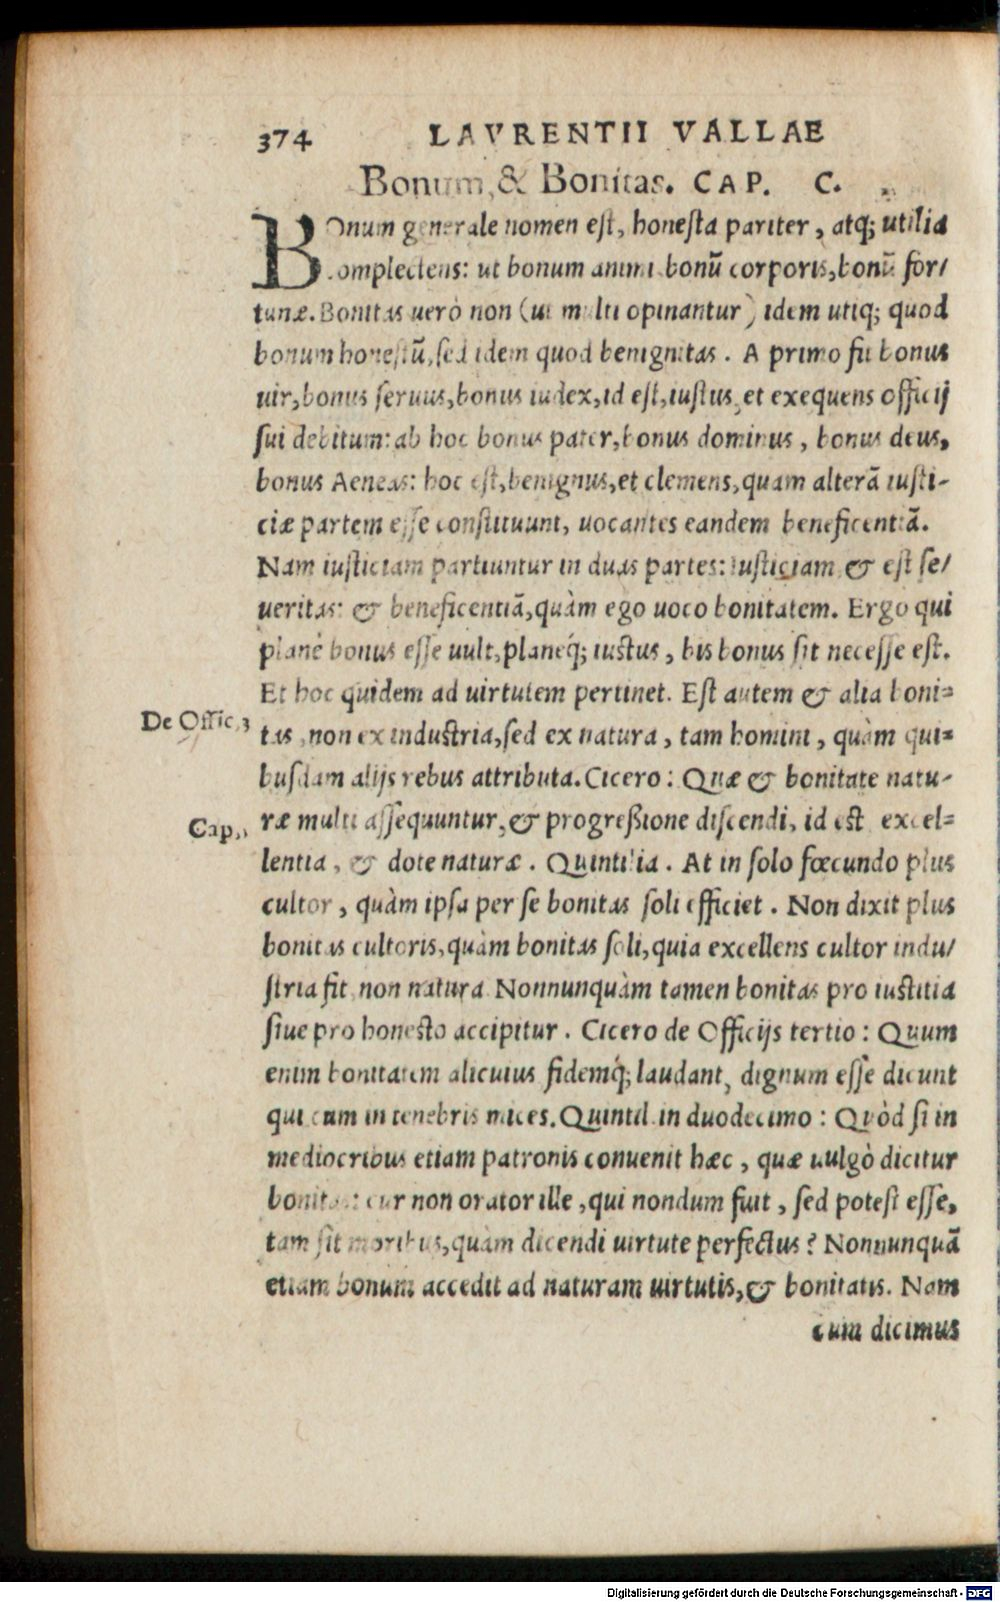 374 LAVRENTII VALLAE
Bonum, & Bonitas. CAP. C.
BOnum generale nomen est, honesta pariter, atq; utilia
complectens: ut bonum animi, bonū corporis, bonū for/
tunæ. Bonitas uerò non (ut multi opinantur) idem utiq; quod
bonum honestū, sed idem quod benignitas. A primo fit bonus
uir, bonus seruus, bonus iudex, id est, iustus, et exequens officij
sui debitum: ab hoc bonus pater, bonus dominus, bonus deus,
bonus Aeneas: hoc est, benignus, et clemens, quam alterā iusti-
ciæ partem esse constituunt, uocantes eandem beneficentiā.
Nam iusticiam partiuntur in duas partes: iusticiam & est se/
ueritas: & beneficentiā, quàm ego uoco bonitatem. Ergo qui
planè bonus esse uult, planeq́; iustus, bis bonus sit necesse est.
Et hoc quidem ad uirtutem pertinet. Est autem & alia boni=
De Offic. 3
tas, non ex industria, sed ex natura, tam homini, quàm qui=
busdam alijs rebus attributa. Cicero: Quæ & bonitate natu-
Cap.
ræ multi assequuntur, & progreßione discendi, id est excel=
lentia, & dote naturæ. Quintilia. At in solo fœcundo plus
cultor, quàm ipsa per se bonitas soli efficiet. Non dixit plus
bonitas cultoris, quàm bonitas soli, quia excellens cultor indu/
stria fit, non natura. Nonnunquàm tamen bonitas pro iustitia
siue pro honesto accipitur. Cicero de Officijs tertio: Quum
enim bonitatem alicuius fidemq́; laudant, dignum esse dicunt
qui cum in tenebris mices. Quintil. in duodecimo: Quòd si in
mediocribus etiam patronis conuenit hæc, quæ uulgò dicitur
bonitas: cur non orator ille, qui nondum fuit, sed potest esse,
tam sit moribus, quàm dicendi uirtute perfectus? Nonnunquā
etiam bonum accedit ad naturam uirtutis, & bonitatis. Nam
cum dicimus
Digitalisierung gefördert durch die Deutsche Forschungsgemeinschaft - DFG